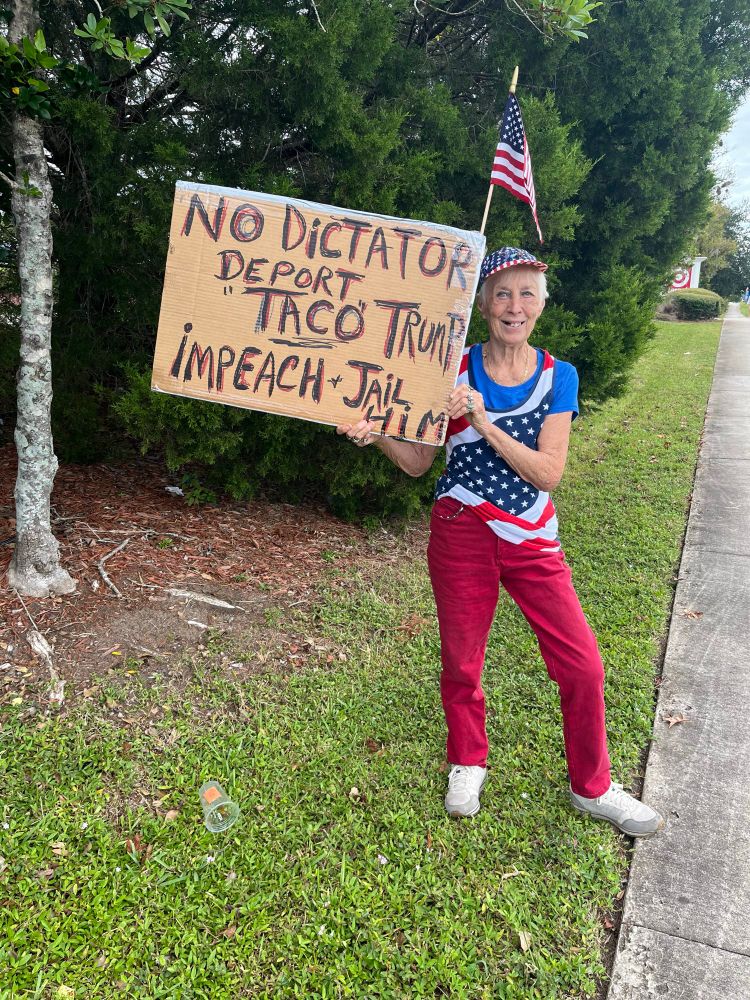 NO DICTATOR
DEPORT
"TACO" TRUMP
IMPEACH + JAIL
HIM